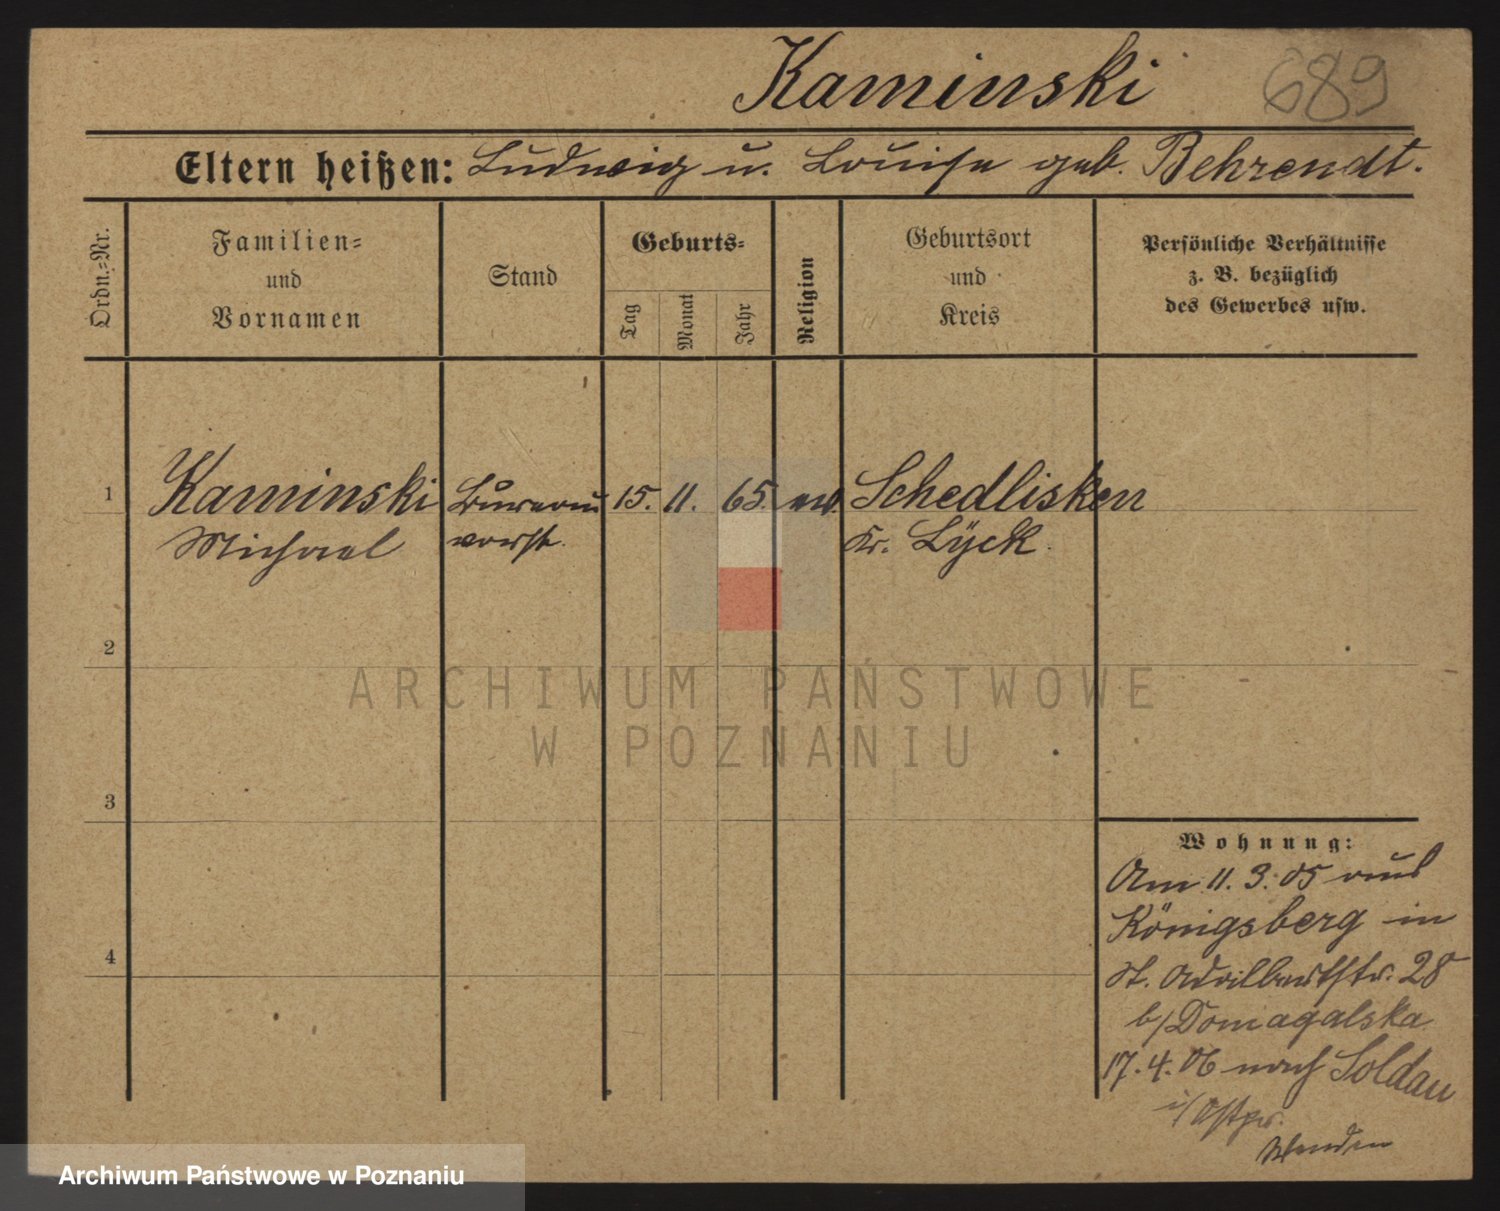 Kaminski 689
Eltern heißen: Ludwig u. Louise geb. Behrendt.
Ordn.-Nr.
Familien-
und
Vornamen
Stand
Geburts-
Tag
Monat
Jahr
Religion
Geburtsort
und
Kreis
Persönliche Verhältnisse
z. B. bezüglich
des Gewerbes usw.
1 Kaminski Bureau 15. 11. 65. ev. Schedlisken
Michael vorst. Kr. Lÿck.
2
3
4
Wohnung:
Am 11.3.05 aus
Königsberg in
St. Adalbertstr. 28
b/ Domagalska
17.4.06 nach Soldau
i/ Ostpr.
Wenden
ARCHIWUM PAŃSTWOWE
W POZNANIU
Archiwum Państwowe w Poznaniu